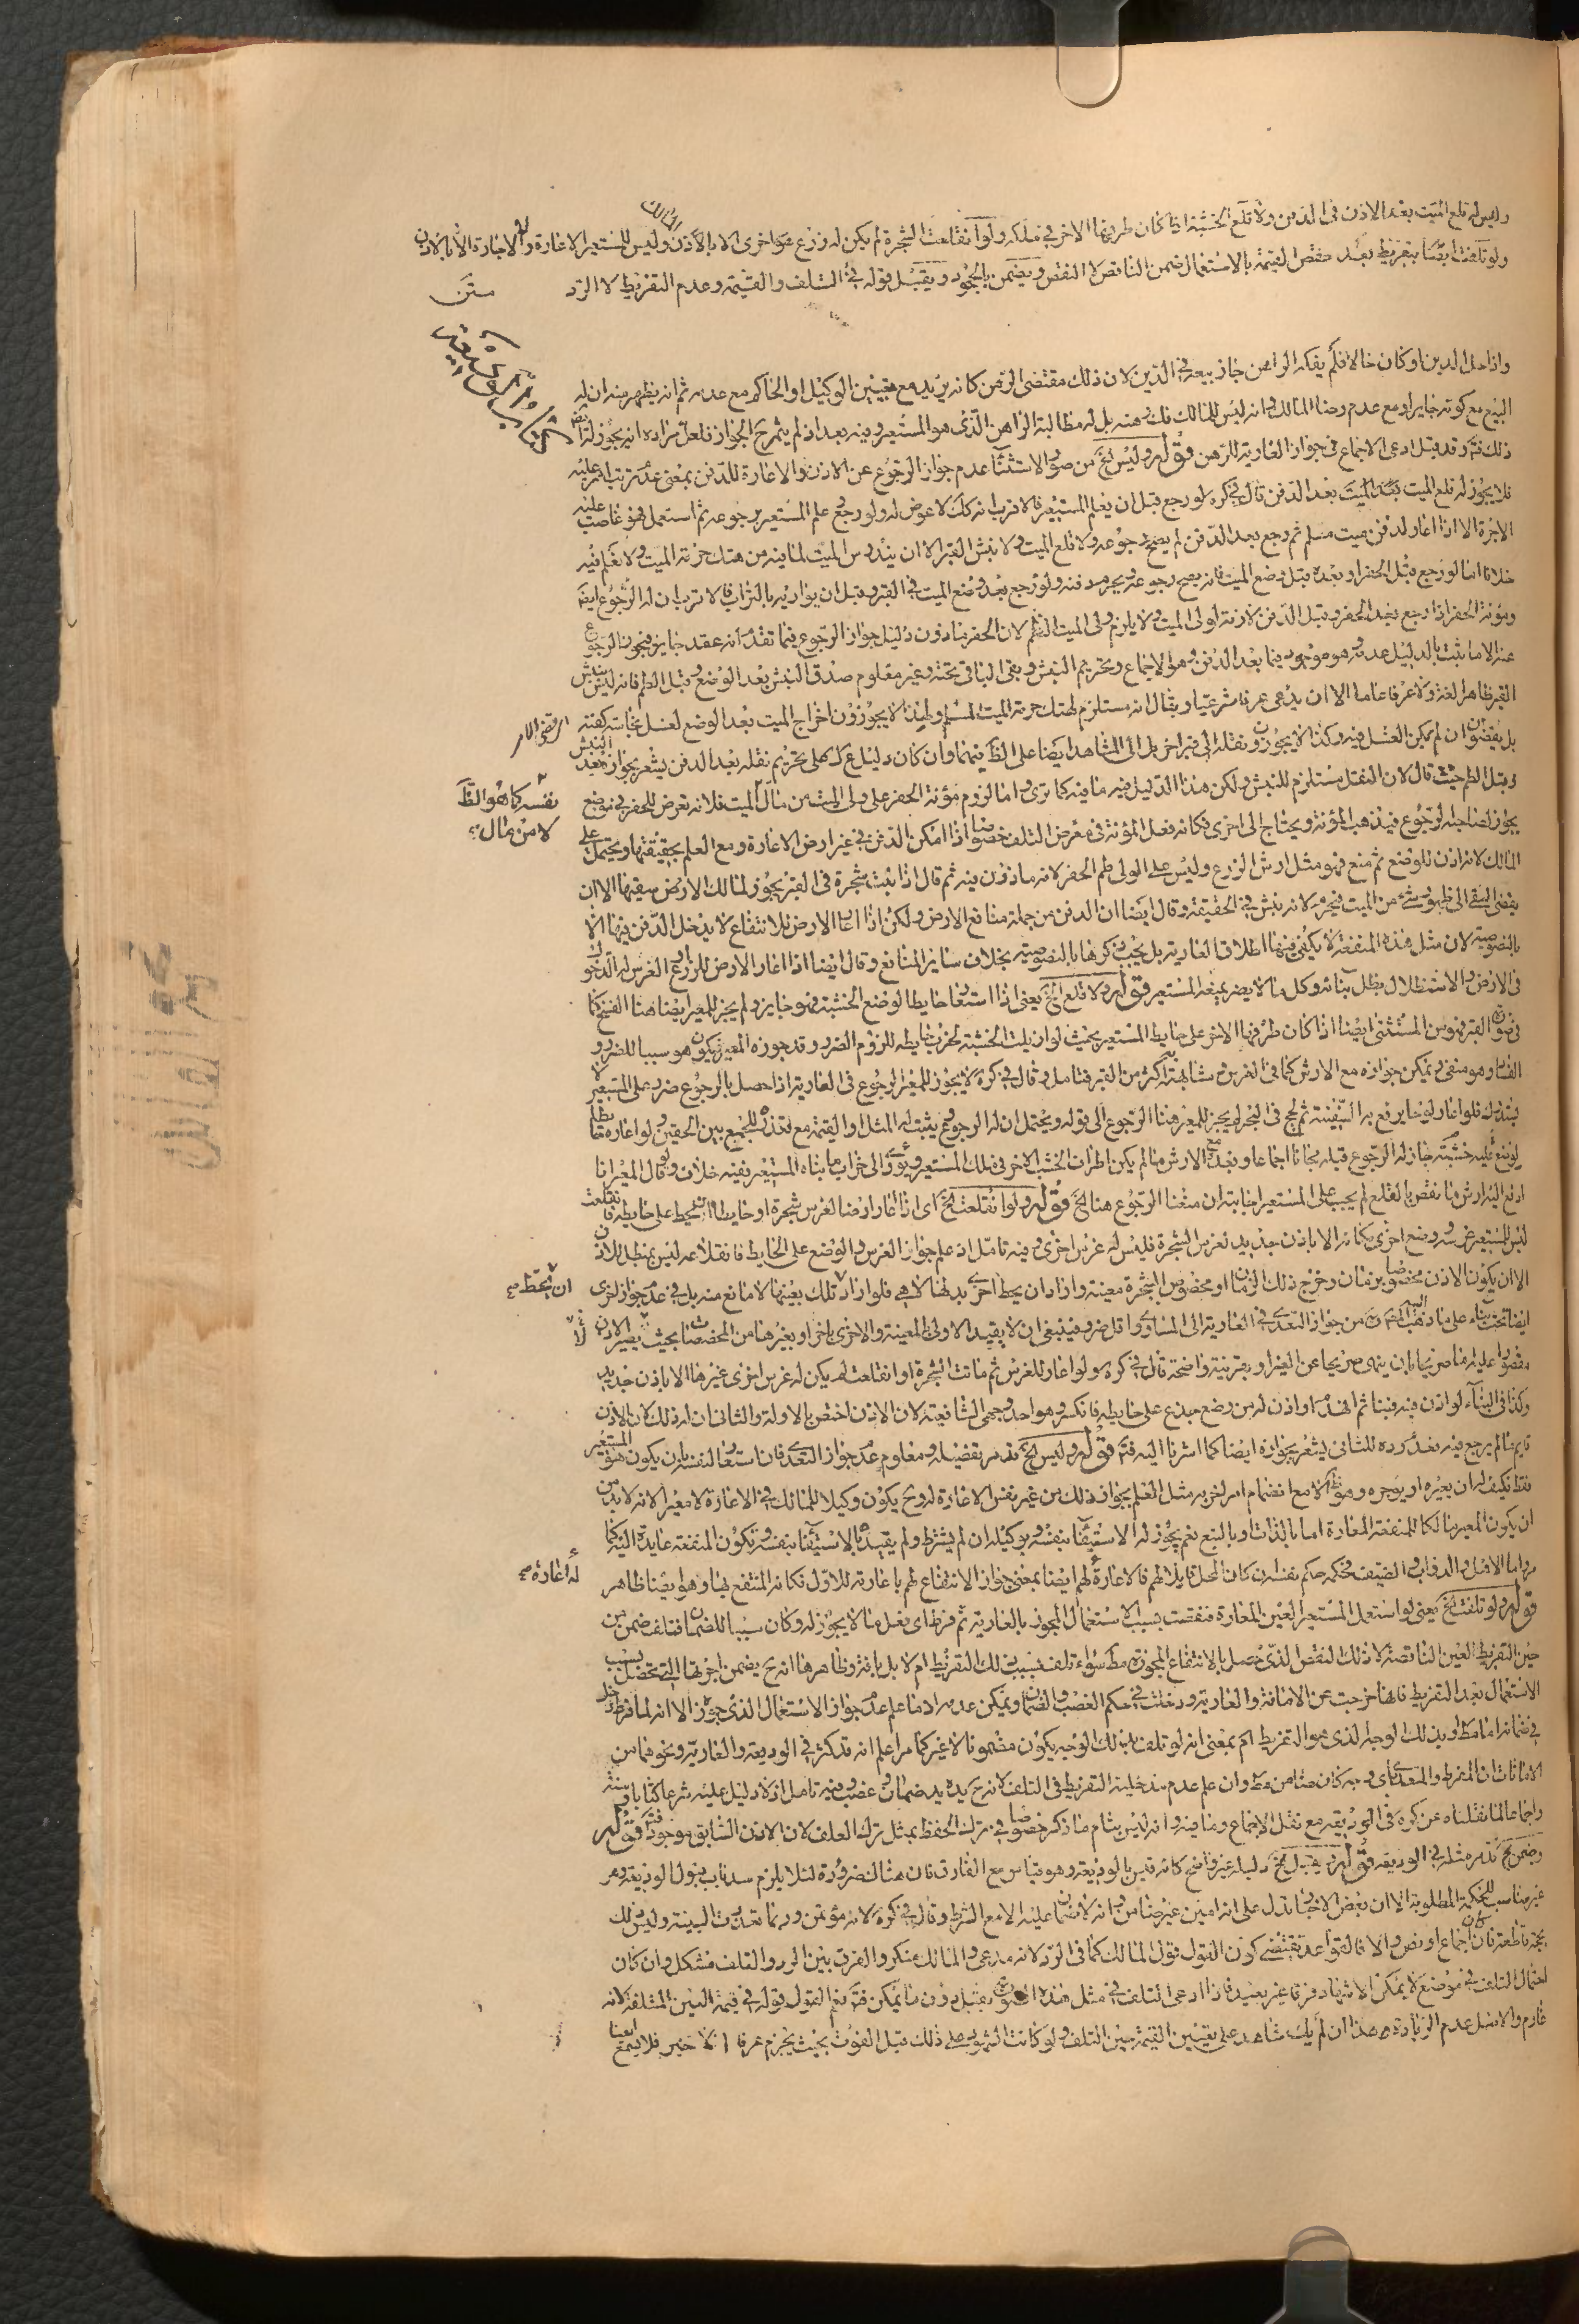 وليس له قلع الميت بعد الاذن فى الدفن ولا قلع الخشبة اذا كان طرفها الاخر فى ملكه ولو انقلعت الشجرة لم يكن له زرع اخرى الا بالاذن وليس للمستعير الاعارة ولا الاجارة الا بالاذن
المالك
ولو تلفت بتفريط بعد نقص القيمة بالاستعمال ضمن الناقص لا النقص ويضمن بالجحود ويقبل قوله فى التلف والقيمة وعدم التفريط لا الرد
متن
كتاب الوديعة
واذا حل الدين او كان حالا فلم يفكه الراهن جاز بيعه فى الدين لان ذلك مقتضى الرهن كانه يريد مع تعيين الوكيل او الحاكم مع عدمه ثم انه يظهر منه ان له
البيع مع كونه جايزا ومع عدم رضا المالك وانه ليس للمالك فك رهنه بل له مطالبة الراهن الذى هو المستعير وفيه بعد اذ لم يصرح الجواز فلعل مراده انه يجوز له
ذلك فت وقد قيل ادعى الاجماع فى جواز العارية للرهن قوله وليس الخ من صور الاستثناء عدم جواز الرجوع عن الاذن والاعارة للدفن بمعنى عدم ترتب اثر عليه
فلا يجوز له قلع الميت بعد الدفن قال فى كره لو رجع قبل ان يعلم المستعير فالاقرب انه كك لا عوض له ولو رجع علم المستعير برجوعه ثم استعمل فهو غاصب عليه
الاجرة الا اذا اعار لدفن ميت مسلم ثم رجع بعد الدفن لم يصح رجوعه ولا قلع الميت ولا نبش القبر الا ان يندرس الميت لما فيه من هتك حرمة الميت ولا نعلم فيه
خلافا اما لو رجع قبل الحفر او بعده قبل وضع الميت فانه يصح رجوعه ويحرم دفنه ولو رجع بعد وضع الميت فى القبر وقبل ان يواريه بالتراب فالاقرب ان له الرجوع ايضا
ومؤنة الحفر اذا رجع بعد الحفر وقبل الدفن لازمة لولى الميت ولا يلزم ولى الميت الطم لان الحفر مأذون دليل جواز الرجوع فيما تقدم انه عقد جايز فيجوز الرجوع
عنه الا ما يثبت بالدليل عدمه وهو موجود فيما بعد الدفن وهو الاجماع وتحريم النبش وبقى الباقى تحته وغير معلوم صدق النبش بعد الوضع وقبل الطم فانه ليس بنبش
القبر ظاهرا لغة ولا عرفا عاما الا ان يدعى عرفا شرعيا ويقال انه مستلزم لهتك حرمة الميت المسلم ولهذا لا يجوزون اخراج الميت بعد الوضع لغسل نجاسة كفنه
بل يقرضون ان لم يمكن الغسل فيه وكذا لا يجوزون نقله الى قبر اخر بل الى المشاهد ايضا على الظ فيهما وان كان دليل على تحريم نقله بعد الدفن يشعر بجوازه
وقبل الطم حيث قال لان النقل مستلزم للنبش ولكن هذا الدليل فيه ما فيه كما ترى واما لزوم مؤنة الحفر على ولى الميت من مال الميت فلانه تعرض للحفر فى موضع
نفسه كما هو الظ
لا من مال
يجوز لصاحبه الرجوع فيذهب المؤنة ويحتاج الى اخرى فكانه فعل المؤنة فى معرض التلف خصوصا اذا امكن الدفن فى غير ارض الاعارة ومع العلم بحقيقتها ويحتمل على
المالك لانه اذن للوضع ثم منع فهو مثل ارش الزرع وليس على الولى طم الحفر لانه ماذون فيه ثم قال اذا نبتت شجرة فى القبر يجوز لمالك الارض سقيها الا ان
يفضى السقى الى ظهور شئ من الميت فيحرم لانه نبش فى الحقيقة وقال ايضا ان الدفن من جملة منافع الارض ولكن اذا اعار الارض للانتفاع لا يدخل الدفن فيها الا
بالنصوصية لان مثل هذه المنفعة لا يكفى فيها اطلاق العارية بل يجب ذكرها بالنصوصية بخلاف ساير المنافع وقال ايضا اذا اعار الارض للزرع او الغرس له الدخول
فى الارض والاستظلال بظل بنائه وكل ما لا يضر بمنفعة المستعير قوله ولا قلع الخ يعنى اذا استعار حايطا لوضع الخشبة فهو جايز ولم يجز للمعير ايضا هنا الفسخ كما
فى صورة القبر فهو من المستثنى ايضا اذا كان طرفها الاخر على حايط المستعير بحيث لو ازيلت الخشبة لخرب حايطه للزوم الضرر وقد جوزه المعير فيكون هو سببا للضرر و
الفساد وهو منفى ويمكن جوازه مع الارش كما فى الغرس ومشابهته اكثر من القبر فتامل وقال فى كره لا يجوز للمعير الرجوع فى العارية اذا حصل بالرجوع ضرر على المستعير
لا يستدرك فلو اعار لوحا يرقع به السفينة ثم لجج فى البحر لم يجز للمعير هنا الرجوع الى قوله ويحتمل ان له الرجوع ويثبت له المثل او القيمة مع تعذره للجمع بين الحقين ولو اعاره حايطا
ليوضع عليه خشبة جاز له الرجوع قبله مجانا اجماعا وبعده مع الارش ما لم يكن اطراف الخشب الاخر فى ملك المستعير ويؤدى الى خراب ما بناه المستعير ففيه خلاف ولو قال المعير انا
ادفع اليه ارش ما نقص بالقلع لم يجب على المستعير اجابته ان منعنا الرجوع هنا الخ قوله ولو انقلعت الخ اى اذا اعار ارضا لغرس شجرة او حايطا فانقلعت
ليس للمستعير غرسه ووضع اخرى مكانه الا باذن جديد لغرس الشجرة فليس له غرس اخرى وفيه تامل اذ علم جواز الغرس والوضع على الحايط فانقلاعه ليس بمبطل للاذن
الا ان يكون الاذن مخصوصا بزمان وخرج ذلك الزمان او مخصوصا بشجرة معينة واراد ان يحط اخرى بدلها لا هى فلو اراد تلك بعينها لا مانع منه بل فى عدم جواز اخرى
ايضا بحث بناء على ما ذهب اليه من جواز التعدى فى العارية الى المساوى واقل ضررا فينبغى ان لا يقيد الاولى بالمعينة والاخرى باخر او بغيرها من المخصصات بحيث يصير الاذن
مقصورا عليه اما صريحا بان ينهى صريحا عن الغير او بقرينة واضحة قال فى كره ولو اعار للغرس ثم ماتت الشجرة او انقلعت لم يكن له غرس اخرى غيرها الا باذن جديد
وكذا فى البناء لو اذن فيه فبنا ثم انهدم او اذن له من وضع جذع على حايطه فانكسر وهو احد وجهى الشافعية لان الاذن اختص بالاولة والثانى ان له ذلك لان الاذن
قايم ما لم يرجع فيه بعد رده للثانى يشعر بجوازه ايضا كما اشرنا اليه فت قوله وليس الخ قد مر تفصيله ومعلوم عدم جواز التعدى فان استعار لنفسه بان يكون هو المستعير
فقط فكيف له ان يعيره او يؤجره وهو ظ الا مع انضمام امر اخر به مثل العلم بجواز ذلك من غير نفس الاعارة له وح يكون وكيلا للمالك فى الاعارة لا معيرا لانه لا بد من
ان يكون المعير مالكا للمنفعة المعارة اما بالذات او بالتبع نعم يجوز له الاستيفاء بنفسه وبوكيله ان لم يشترط ولم يقيده بالاستيفاء بنفسه وتكون المنفعة عايدة اليه كما
مر واما الاهل والدواب والضيف فحكمه حكم نفسه ان كان المحل قابلا لهم فالاعارة لهم ايضا بمعنى جواز الانتفاع لهم باعارته للاول فكانه المنتفع بها وهو ايضا ظاهر
قوله ولو تلفت الخ يعنى لو استعمل المستعير العين المعارة فنقصت بسبب الاستعمال المجوز بالعارية ثم فرط اى فعل ما لا يجوز له وكان سببا للضمان فتلفت ضمن من
حين التفريط العين الناقصة لا ذلك النقص الذى حصل بالانتفاع المجوز مط سواء تلف بسبب ذلك التفريط ام لا بل بافة وظاهرها انه ح يضمن اجرتها التى تحصل بسبب
الاستعمال بعد التفريط فانها خرجت عن الامانة والعارية ودخلت فى حكم الغصب والضمان ويمكن عدمه اذ ما علم عدم جواز الاستعمال الذى جوز الا انه لما فرط دخل
فى ضمانه اما مط او بذلك الوجه الذى هو التفريط اعم بمعنى انه لو تلف بذلك الوجه يكون مضمونا لا غير كما مر اعلم انه قد ذكر فى الوديعة والعارية ونحوهما من
الامانات ان المفرط والمتعدى باى وجه كان ضامن مط وان علم عدم مدخلية التفريط فى التلف لانه ح يده يد ضمان وغصب وفيه تامل اذ لا دليل عليه شرعا كتابا وسنة
واجماعا لما نقلناه عن كره فى الوديعة مع نقل الاجماع وما فيه وانه ليس بتام ما ذكره خصوصا فى ترك الحفظ مثل ترك العلف لان الاذن السابق موجود فت قوله
ويضمن الخ قد مر مثله فى الوديعة قوله ويقبل الخ دليله غير واضح كانه قيس بالوديعة وهو قياس مع الفارق فان هنا لضرورة لئلا يلزم سد باب قبول الوديعة وهو
غير مناسب للحكمة المطلوبة الا ان بعض الاخبار تدل على انه امين غير ضامن وانه لا ضمان عليه الا مع الشرط وقال فى كره لانه مؤتمن وربما تعذرت البينة وليس ذلك
بحجة قاطعة فان كان اجماعا او نص والا فالقواعد تقتضى كون القول قول المالك كما فى الرد لانه مدعى والمالك منكر والفرق بين الرد والتلف مشكل وان كان
احتمال التلف فى موضع لا يمكن الاشهاد فرقا غير بعيد فاذا ادعى التلف فى مثل هذه الصورة يقبل دون ما يمكن فت نعم القول قوله فى قيمة العين المتلفة لانه
غارم والاصل عدم الزيادة هذا ان لم يكن شاهد على تعيين القيمة حين التلف ولو كانت الشهود على ذلك قبل الفوت بحيث يجزم عرفا فلا يسمع ايضا